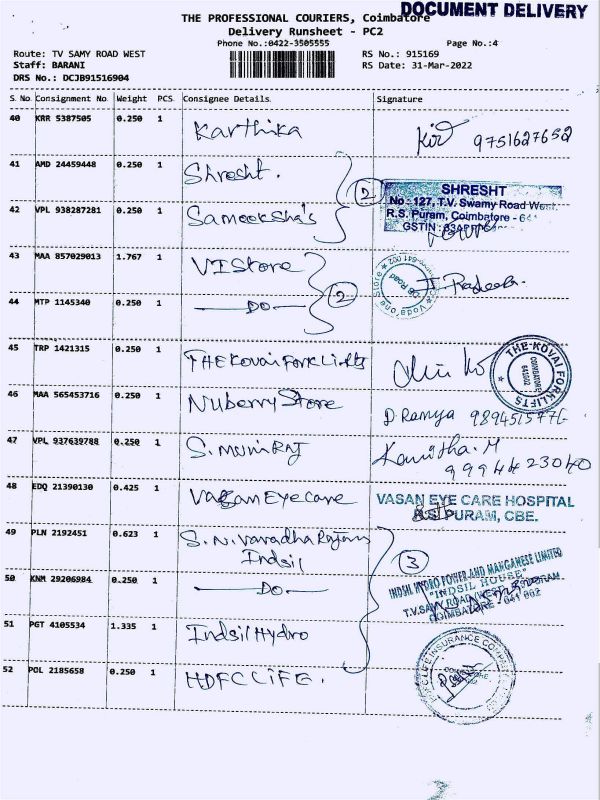 DOCUMENT DELIVERY
THE PROFESSIONAL COURIERS, Coimbatore
Delivery Runsheet - PC2
Phone No.:0422-3505555 Page No.:4
Route: TV SAMY ROAD WEST RS No.: 915169
Staff: BARANI RS Date: 31-Mar-2022
DRS No.: DCJB91516904
S. No Consignment No Weight PCS Consignee Details Signature
40 KRR 5387505 0.250 1 Karthika 9751627652
41 AMD 24459448 0.250 1 Shresht.
2
SHRESHT
No: 127, T.V. Swamy Road West,
R.S. Puram, Coimbatore - 641
GSTIN :
42 VPL 938287281 0.250 1 Sameeksha's
43 MAA 857029013 1.767 1 VI Store
2
44 MTP 1145340 0.250 1 — DO —
45 TRP 1421315 0.250 1 THE Kovai Forklifts
THE-KOVAI FORKLIFTS
COIMBATORE
641002
46 MAA 565453716 0.250 1 Nuberry Store D. Ramya
47 VPL 937639788 0.250 1 S. MuniRaj Kavitha. M
9994423040
48 EDQ 21390130 0.425 1 Vasan Eye care VASAN EYE CARE HOSPITAL
R.S. PURAM, CBE.
49 PLN 2192451 0.623 1 S. N. Varadha Rajan
Indsil
3
INDSIL HYDRO POWER AND MANGANESE LIMITED
"INDSIL HOUSE"
T.V. SAMY ROAD WEST, R.S. PURAM
COIMBATORE - 641 002
50 KNM 29206984 0.250 1 — DO —
51 PGT 4105534 1.335 1 Indsil Hydro
52 POL 2185658 0.250 1 HDFC LIFE.
HDFC LIFE INSURANCE COMPANY